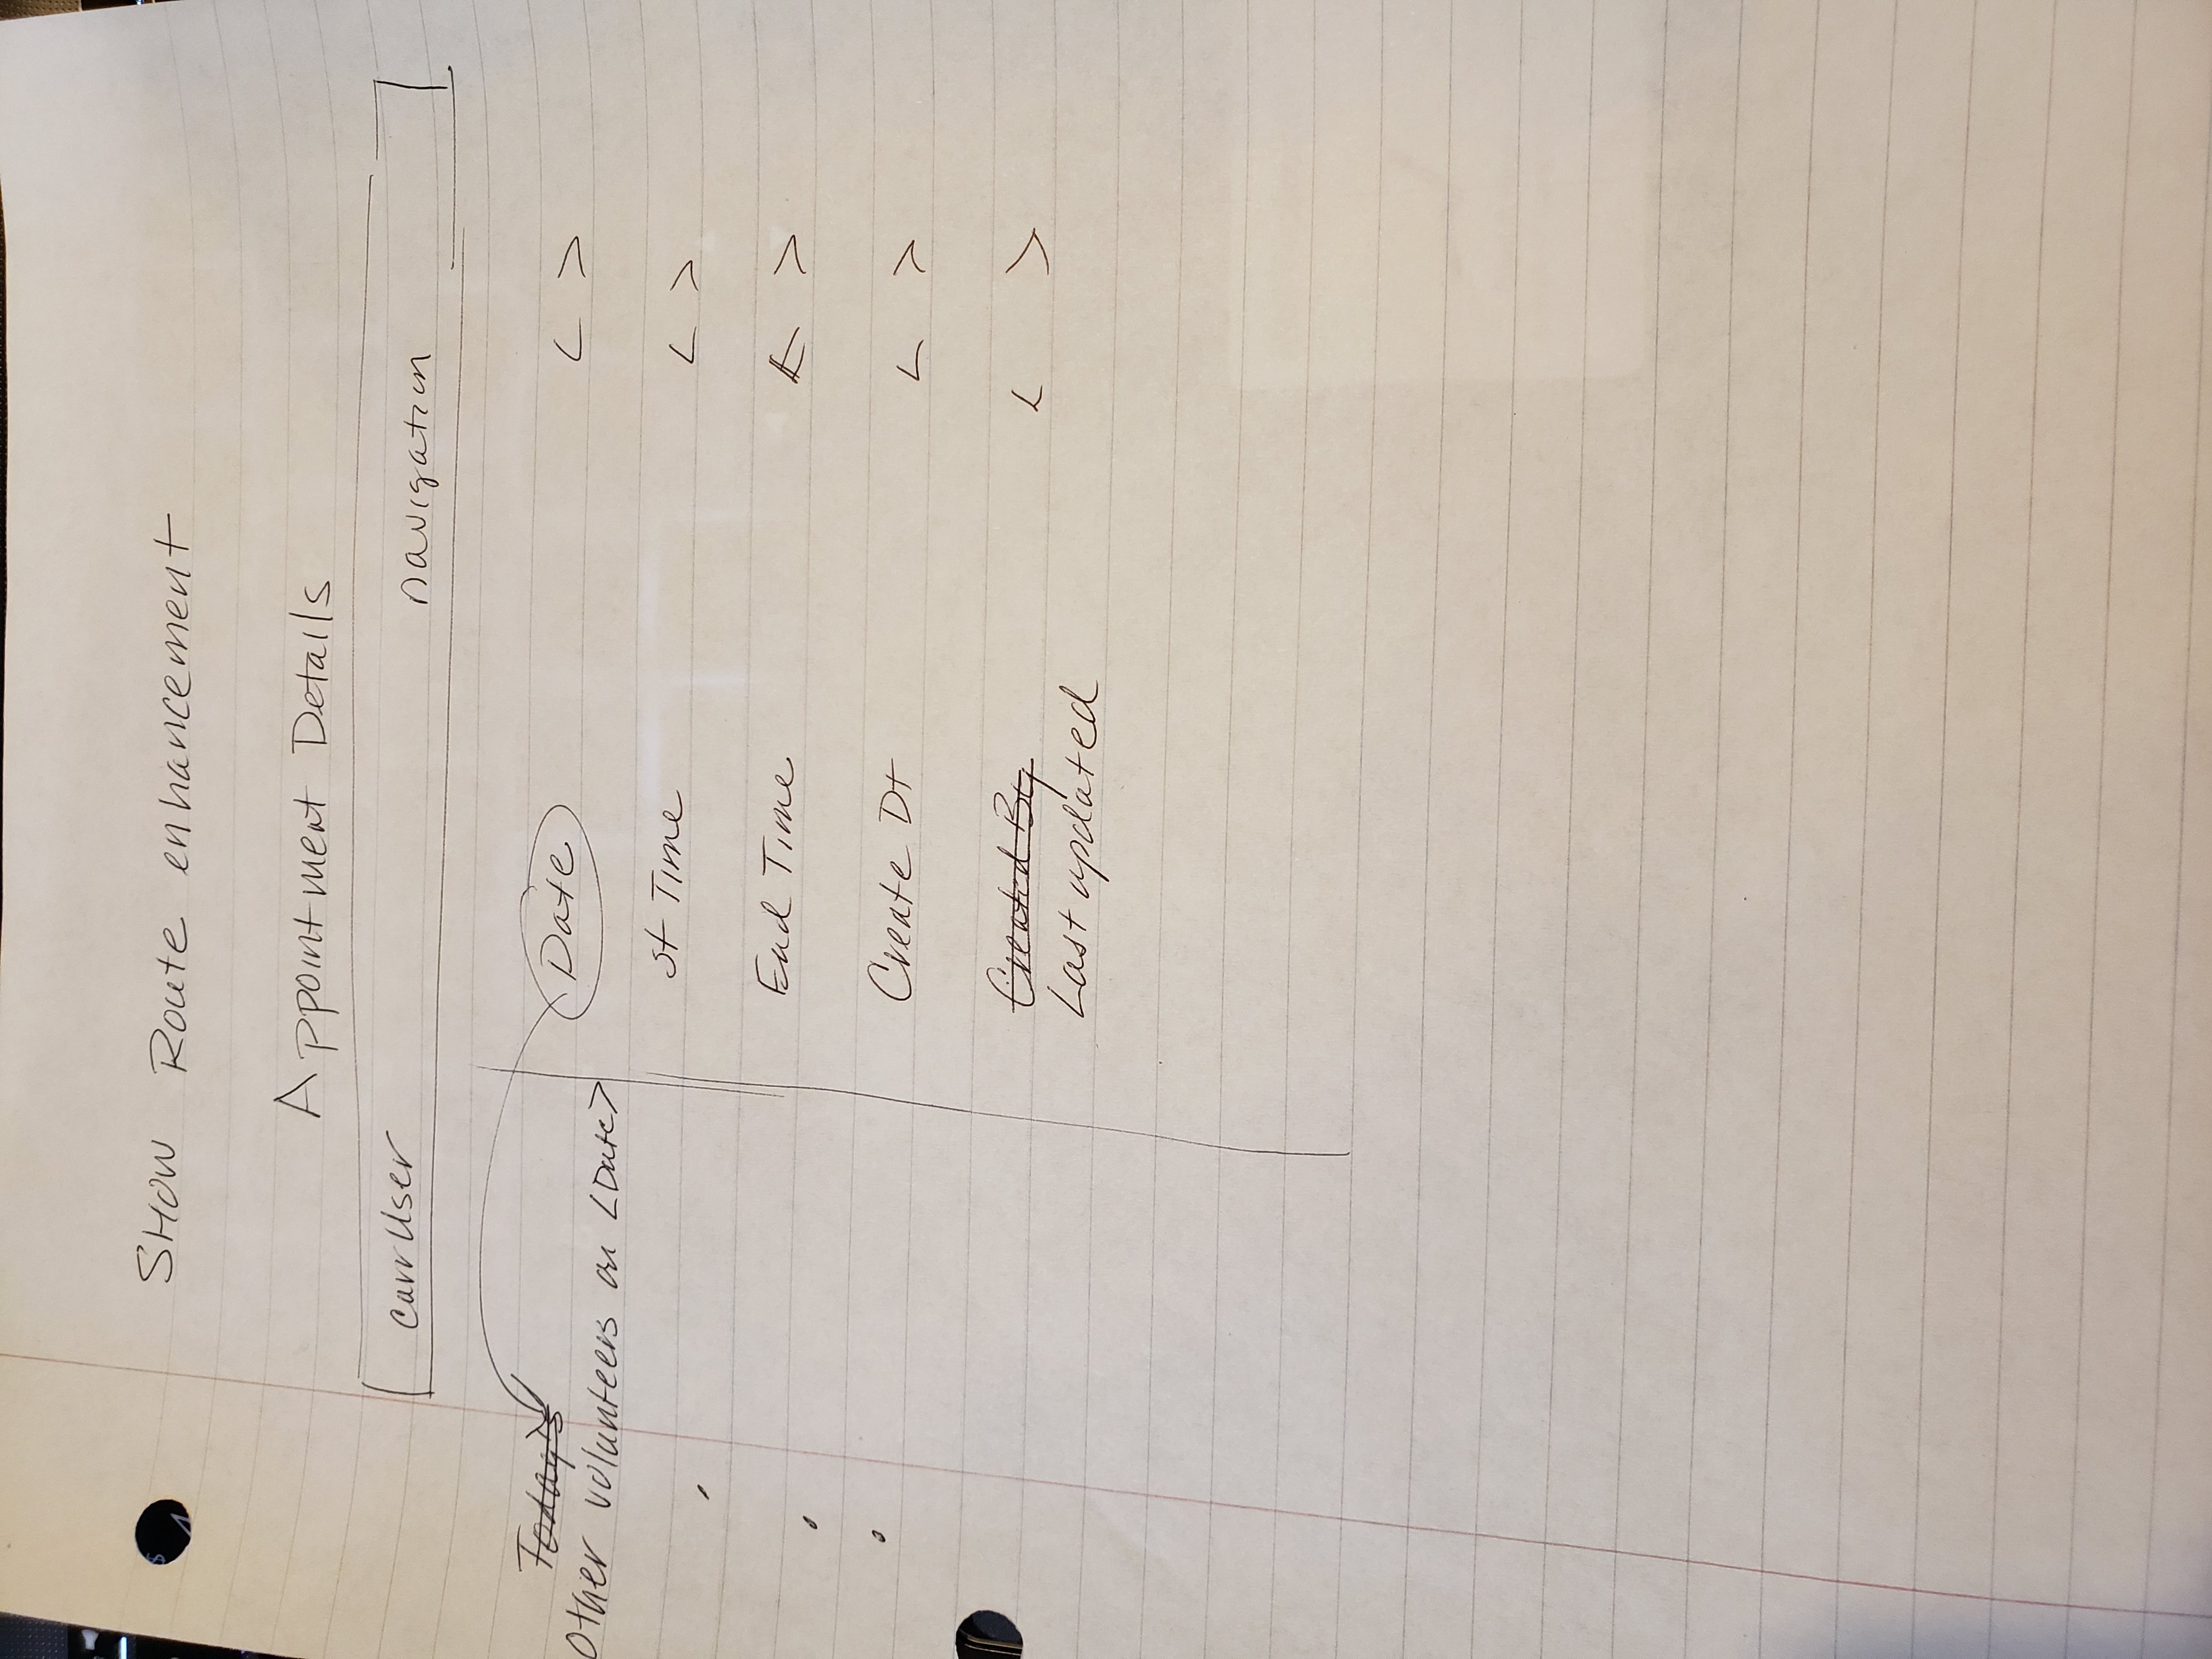 SHOW Route enhancement
Appointment Details
currUser navigation
Today's
Other volunteers on <Date>
Date < >
St Time < >
End Time < >
Create Dt < >
Created By < >
Last updated